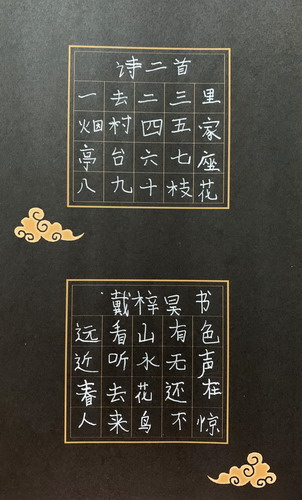 诗二首
一去二三里
烟村四五家
亭台六七座
八九十枝花
戴梓昊书
远看山有色
近听水无声
春去花还在
人来鸟不惊